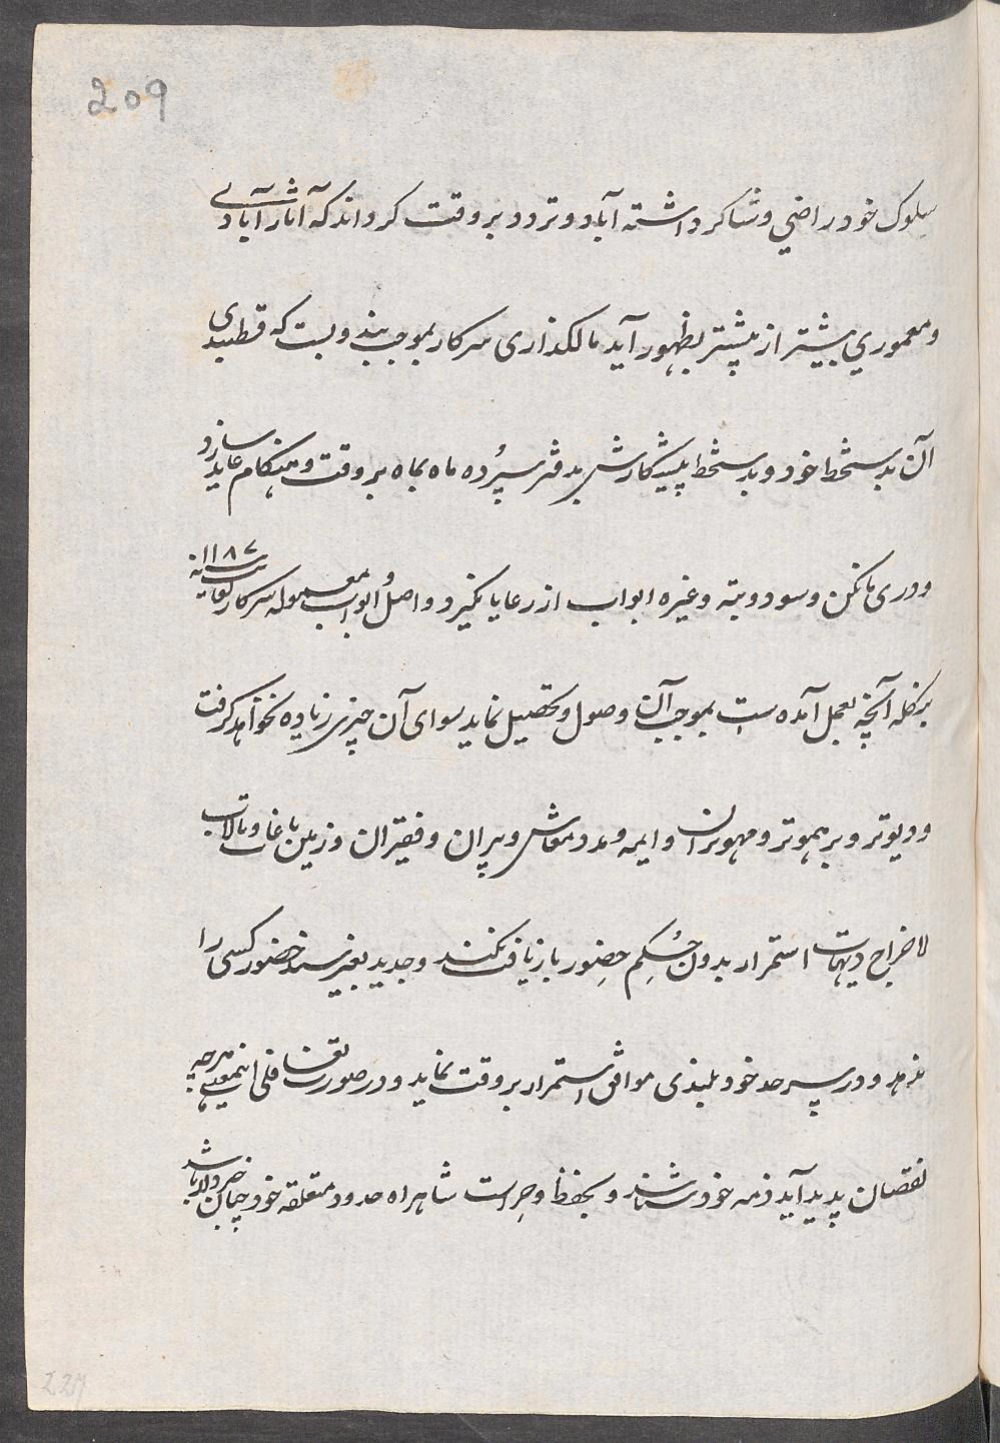 209
سلوک خود راضی و شاکر داشته آباد و تردد بر وقت کرداند که آثار آبادی
و معموری بیشتر از پیشتر بظهور آید مالکذاری سرکار بموجب بند و بست که قسطبندی
آن بدستخط خود و بدستخط پیشکارش بدفتر سپرده ماه بماه بر وقت و هنکام عاید سازد
و وری مانکن و سود و بته و غیره ابواب از رعایا نکیرد و اصل و ابواب معموله سرکار لغایت ۱۱۸۷
آنچه بعمل آمده است بموجب آن وصول و تحصیل نماید سوای آن چیزی زیاده نخواهد کرفت
و دیوتر و برهموتر و مهوتران و ایمه و مدد معاش و پیران و فقیران و زمین باغات و تالاب
لاخراج دیهات استمرار بدون حکم حضور بازیافت نکند و جدید بغیر سند حضور کسی را
ندهد و در سرحد خود بلبندی موافق استمرار بر وقت نماید و در صورت تغافلی اینمعنی هرچه
نقصان پدید آید ذمه خود شناسند و بحفظ و حراست شاهراه حدود متعلقه خود چنان خبردار باشد